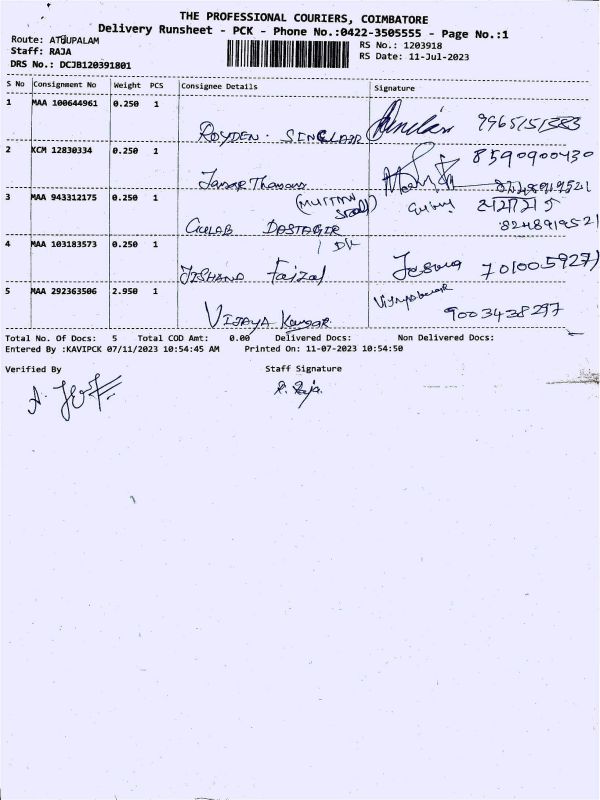 THE PROFESSIONAL COURIERS, COIMBATORE
Delivery Runsheet - PCK - Phone No.:0422-3505555 - Page No.:1
Route: ATHUPALAM
Staff: RAJA
DRS No.: DCJB120391801
RS No.: 1203918
RS Date: 11-Jul-2023
S No Consignment No Weight PCS Consignee Details Signature
1 MAA 100644961 0.250 1
ROYDEN. SINCLAIR 9965151383
2 KCM 12830334 0.250 1 8590900430
3 MAA 943312175 0.250 1
(MUTTON STALL)
GULAB DASTAGIR 8248919521
4 MAA 103183573 0.250 1
JISHANA Faizal
5 MAA 292363506 2.950 1
VIJAYA Kumar 9003438297
Total No. Of Docs: 5 Total COD Amt: 0.00 Delivered Docs: Non Delivered Docs:
Entered By :KAVIPCK 07/11/2023 10:54:45 AM Printed On: 11-07-2023 10:54:50
Verified By Staff Signature
R. Raja.